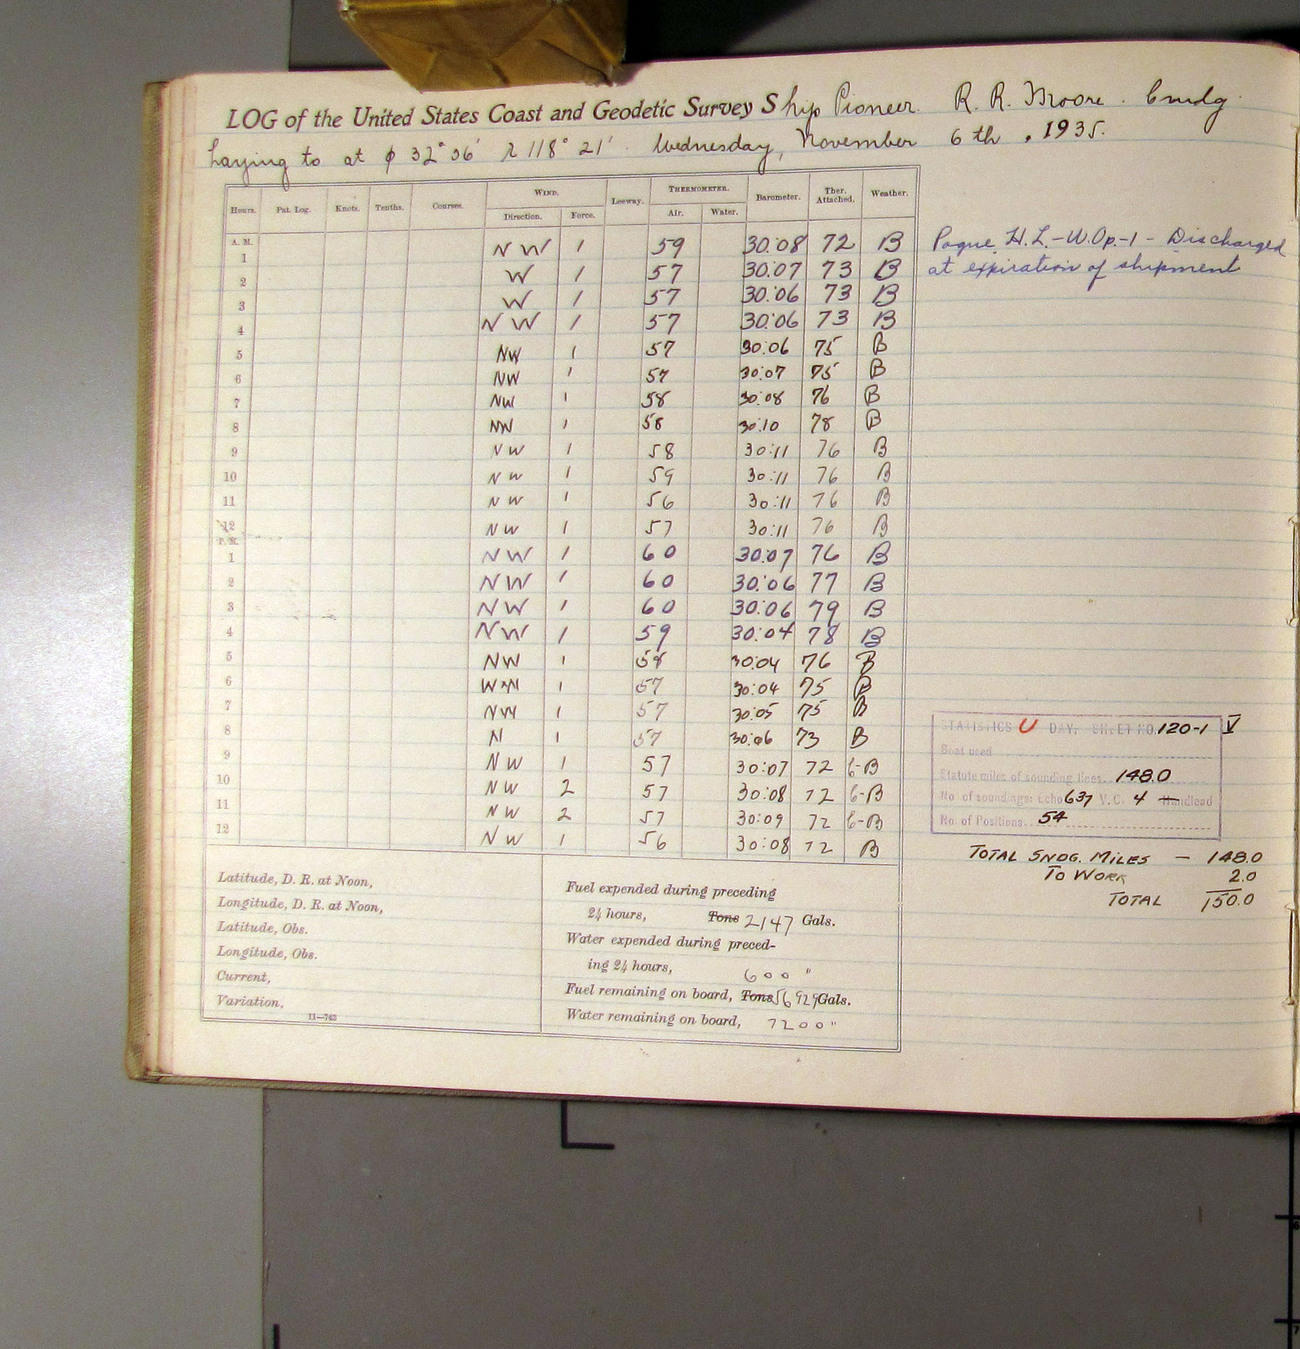 LOG of the United States Coast and Geodetic Survey Ship Pioneer R. R. Moore. Cmdg.
Laying to at φ 32° 36' λ 118° 21' Wednesday, November 6th, 1935.
Hours. Pat. Log. Knots. Tenths. Courses. WIND. Leeway. THERMOMETER. Barometer. Ther. Attached. Weather.
Direction. Force. Air. Water.
A. M.
1 NW 1 59 30:08 72 B
2 W 1 57 30:07 73 B
3 W 1 57 30:06 73 B
4 NW 1 57 30:06 73 B
5 NW 1 57 30:06 75 B
6 NW 1 57 30:07 75 B
7 NW 1 58 30:08 76 B
8 NW 1 58 30:10 78 B
9 NW 1 58 30:11 76 B
10 NW 1 59 30:11 76 B
11 NW 1 56 30:11 76 B
12 NW 1 57 30:11 76 B
P. M.
1 NW 1 60 30:07 76 B
2 NW 1 60 30:06 77 B
3 NW 1 60 30:06 79 B
4 NW 1 59 30:04 78 B
5 NW 1 58 30:04 76 B
6 1 57 30:04 75 B
7 NW 1 57 30:05 75 B
8 N 1 57 30:06 73 B
9 NW 1 57 30:07 72
10 NW 2 57 30:08 72
11 NW 2 57 30:09 72
12 NW 1 56 30:08 72 B
Pogue H.L.-W.Op.-1 - Discharged
at expiration of shipment
STATISTICS U DAY, SHEET NO. 120-1 V
Boat used
Statute miles of sounding lines 148.0
No. of soundings: Echo 637 V.C. 4 Handlead
No. of Positions 54
TOTAL SNDG. MILES - 148.0
TO WORK 2.0
TOTAL 150.0
Latitude, D. R. at Noon,
Longitude, D. R. at Noon,
Latitude, Obs.
Longitude, Obs.
Current,
Variation,
11-763
Fuel expended during preceding
24 hours, Tons 2147 Gals.
Water expended during preced-
ing 24 hours, 600 "
Fuel remaining on board, Tons 56929 Gals.
Water remaining on board, 7200 "